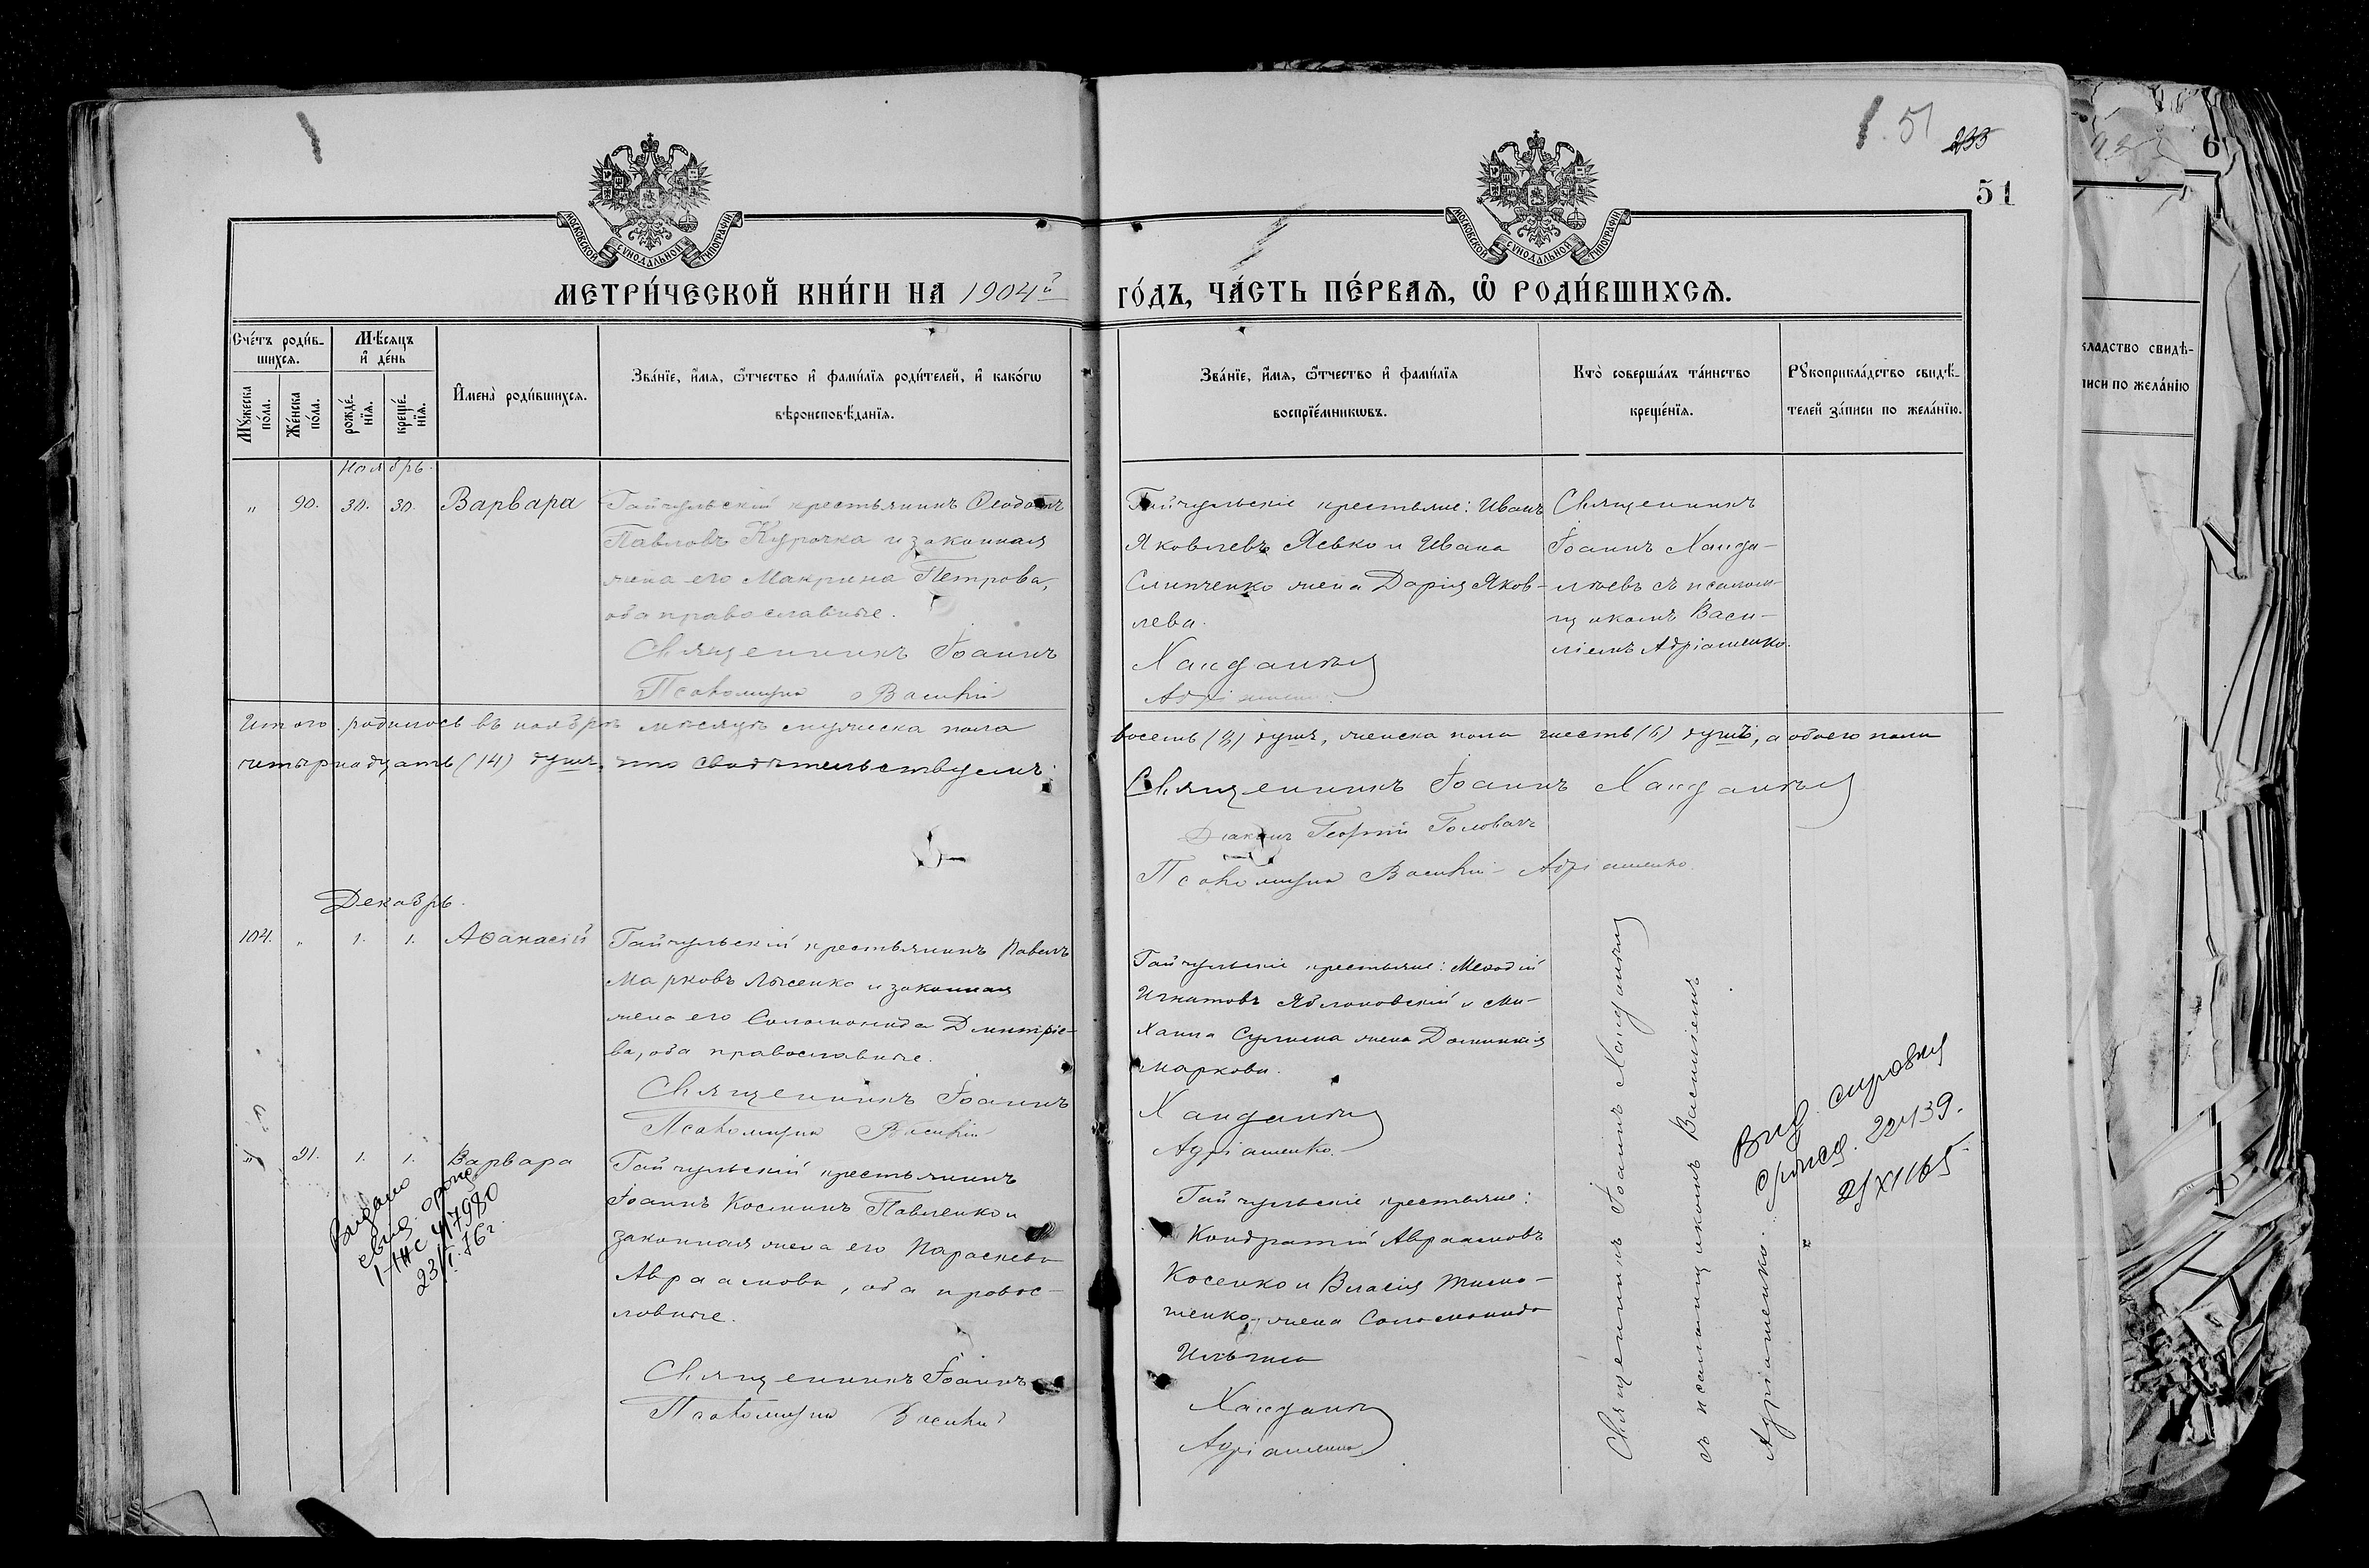 51
233
51
МОСКОВСКОЙ СѴНОДАЛЬНОЙ ТИПОГРАФІИ
МОСКОВСКОЙ СѴНОДАЛЬНОЙ ТИПОГРАФІИ
МЕТРИ́ЧЕСКОЙ КНИ́ГИ НА 1904й ГО́ДЪ, ЧА́СТЬ ПЕ́РВАѦ, Ѡ РОДИ́ВШИХСѦ.
Сче́тъ роди́в-
шихсѧ.
Мѣ́сѧцъ
и҆ де́нь
Мꙋ́жеска
по́ла.
Же́нска
по́ла.
рожде́-
нїѧ.
креще́-
нїѧ.
И҆мена̀ роди́вшихсѧ.
Зва́нїе, и҆́мѧ, ѻ҆́тчество и҆ фами́лїѧ роди́телей, и҆ како́гѡ
вѣроисповѣ́данїѧ.
Зва́нїе, и҆́мѧ, ѻ҆́тчество и҆ фами́лїѧ
воспрїе́мникѡвъ.
Кто̀ соверша́лъ та́инство
креще́нїѧ.
Рꙋкоприкла́дство свидѣ́-
телей за́писи по жела́нїю.
Ноябрь.
" 90. 30. 30. Варвара
Гайчульскій крестьянинъ Ѳеодотъ
Павловъ Курочка и законная
жена его Макрина Петрова,
оба православные.
Священникъ Іоаннъ
Псаломщикъ Василій
Гайчульскіе крестьяне: Иванъ
Яковлевъ Левко и Ивана
Слипченко жена Дарія Яков-
лева.
Хандалѣевъ
Адріашенко
Священникъ
Іоаннъ Ханда-
лѣевъ съ псалом-
щикомъ Васи-
ліемъ Адріашенко.
Итого родилось въ ноябрѣ мѣсяцѣ мужеска пола восемь (8) душъ, женска пола шесть (6) душъ, а обоего пола
четырнадцать (14) душъ, что свидѣтельствуемъ:
Священникъ Іоаннъ Хандалѣевъ
Діаконъ Георгій Головачъ
Псаломщикъ Василій Адріашенко.
Декабрь.
104. " 1. 1. Аѳанасій
Гайчульскій крестьянинъ Павелъ
Марковъ Лысенко и законная
жена его Соломонида Димитріе-
ва, оба православные.
Священникъ Іоаннъ
Псаломщикъ Василій
Гайчульскіе крестьяне: Меѳодій
Игнатовъ Яблоновскій и Ми-
хаила Сулима жена Домникія
Маркова.
Хандалѣевъ
Адріашенко.
" 91. 1. 1. Варвара
Гайчульскій крестьянинъ
Іоаннъ Косминъ Павленко и
законная жена его Параскева
Авраамова, оба правос-
лавные.
Священникъ Іоаннъ
Псаломщикъ Василій
Гайчульскіе крестьяне:
Кондратій Авраамовъ
Косенко и Власія Тимо-
шенко жена Соломонида
Ильина
Хандалѣевъ
Адріашенко
Священникъ Іоаннъ Хандалѣевъ
съ псаломщикомъ Василіемъ
Адріашенко.
Видано
свид. о рожд
I-ЖС 417980
23/I.76г.
Вид справка
о рожд. 22439.
25/XI 65
6
кладство свидѣ-
писи по жела́нію